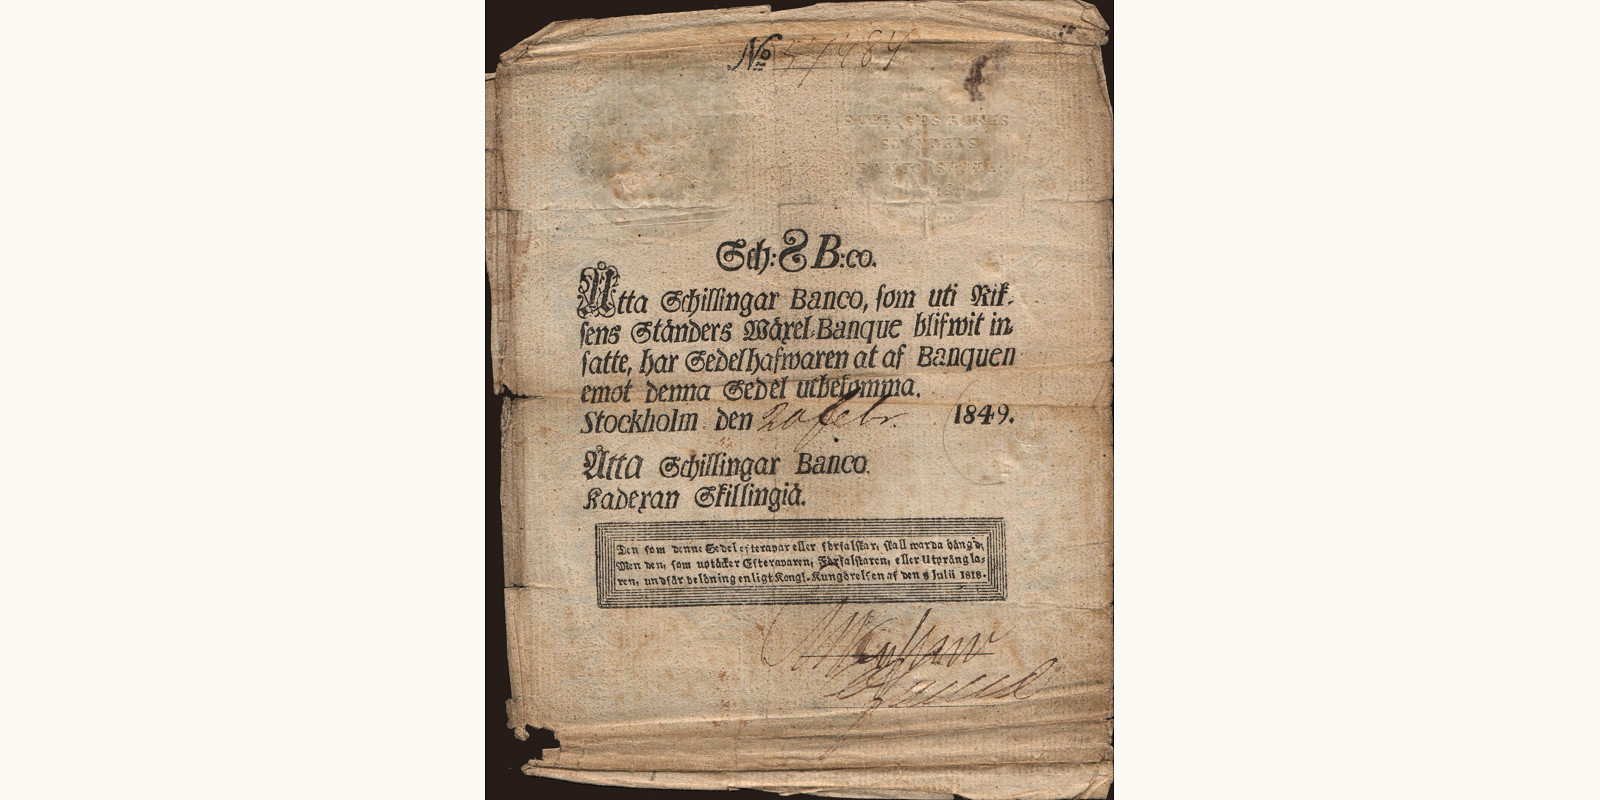 No 57484
SVERIGES RIKES
STÄNDERS
Sch: 8 B:co.
Åtta Schillingar Banco, som uti Rik-
sens Ständers Wäxel-Banque blifwit in-
satte, har Sedelhafwaren at af Banquen
emot denna Sedel utbekomma.
Stockholm den 20 febr. 1849.
Åtta Schillingar Banco.
Kadexan Skillingiä.
Den som denne Sedel efterapar eller förfalskar, skall warda hängd;
Men den, som uptäcker Efteraparen, Förfalskaren, eller Utpräng la-
ren, undfår belöning enligt Kongl. Kungörelsen af den 8 Julii 1818.